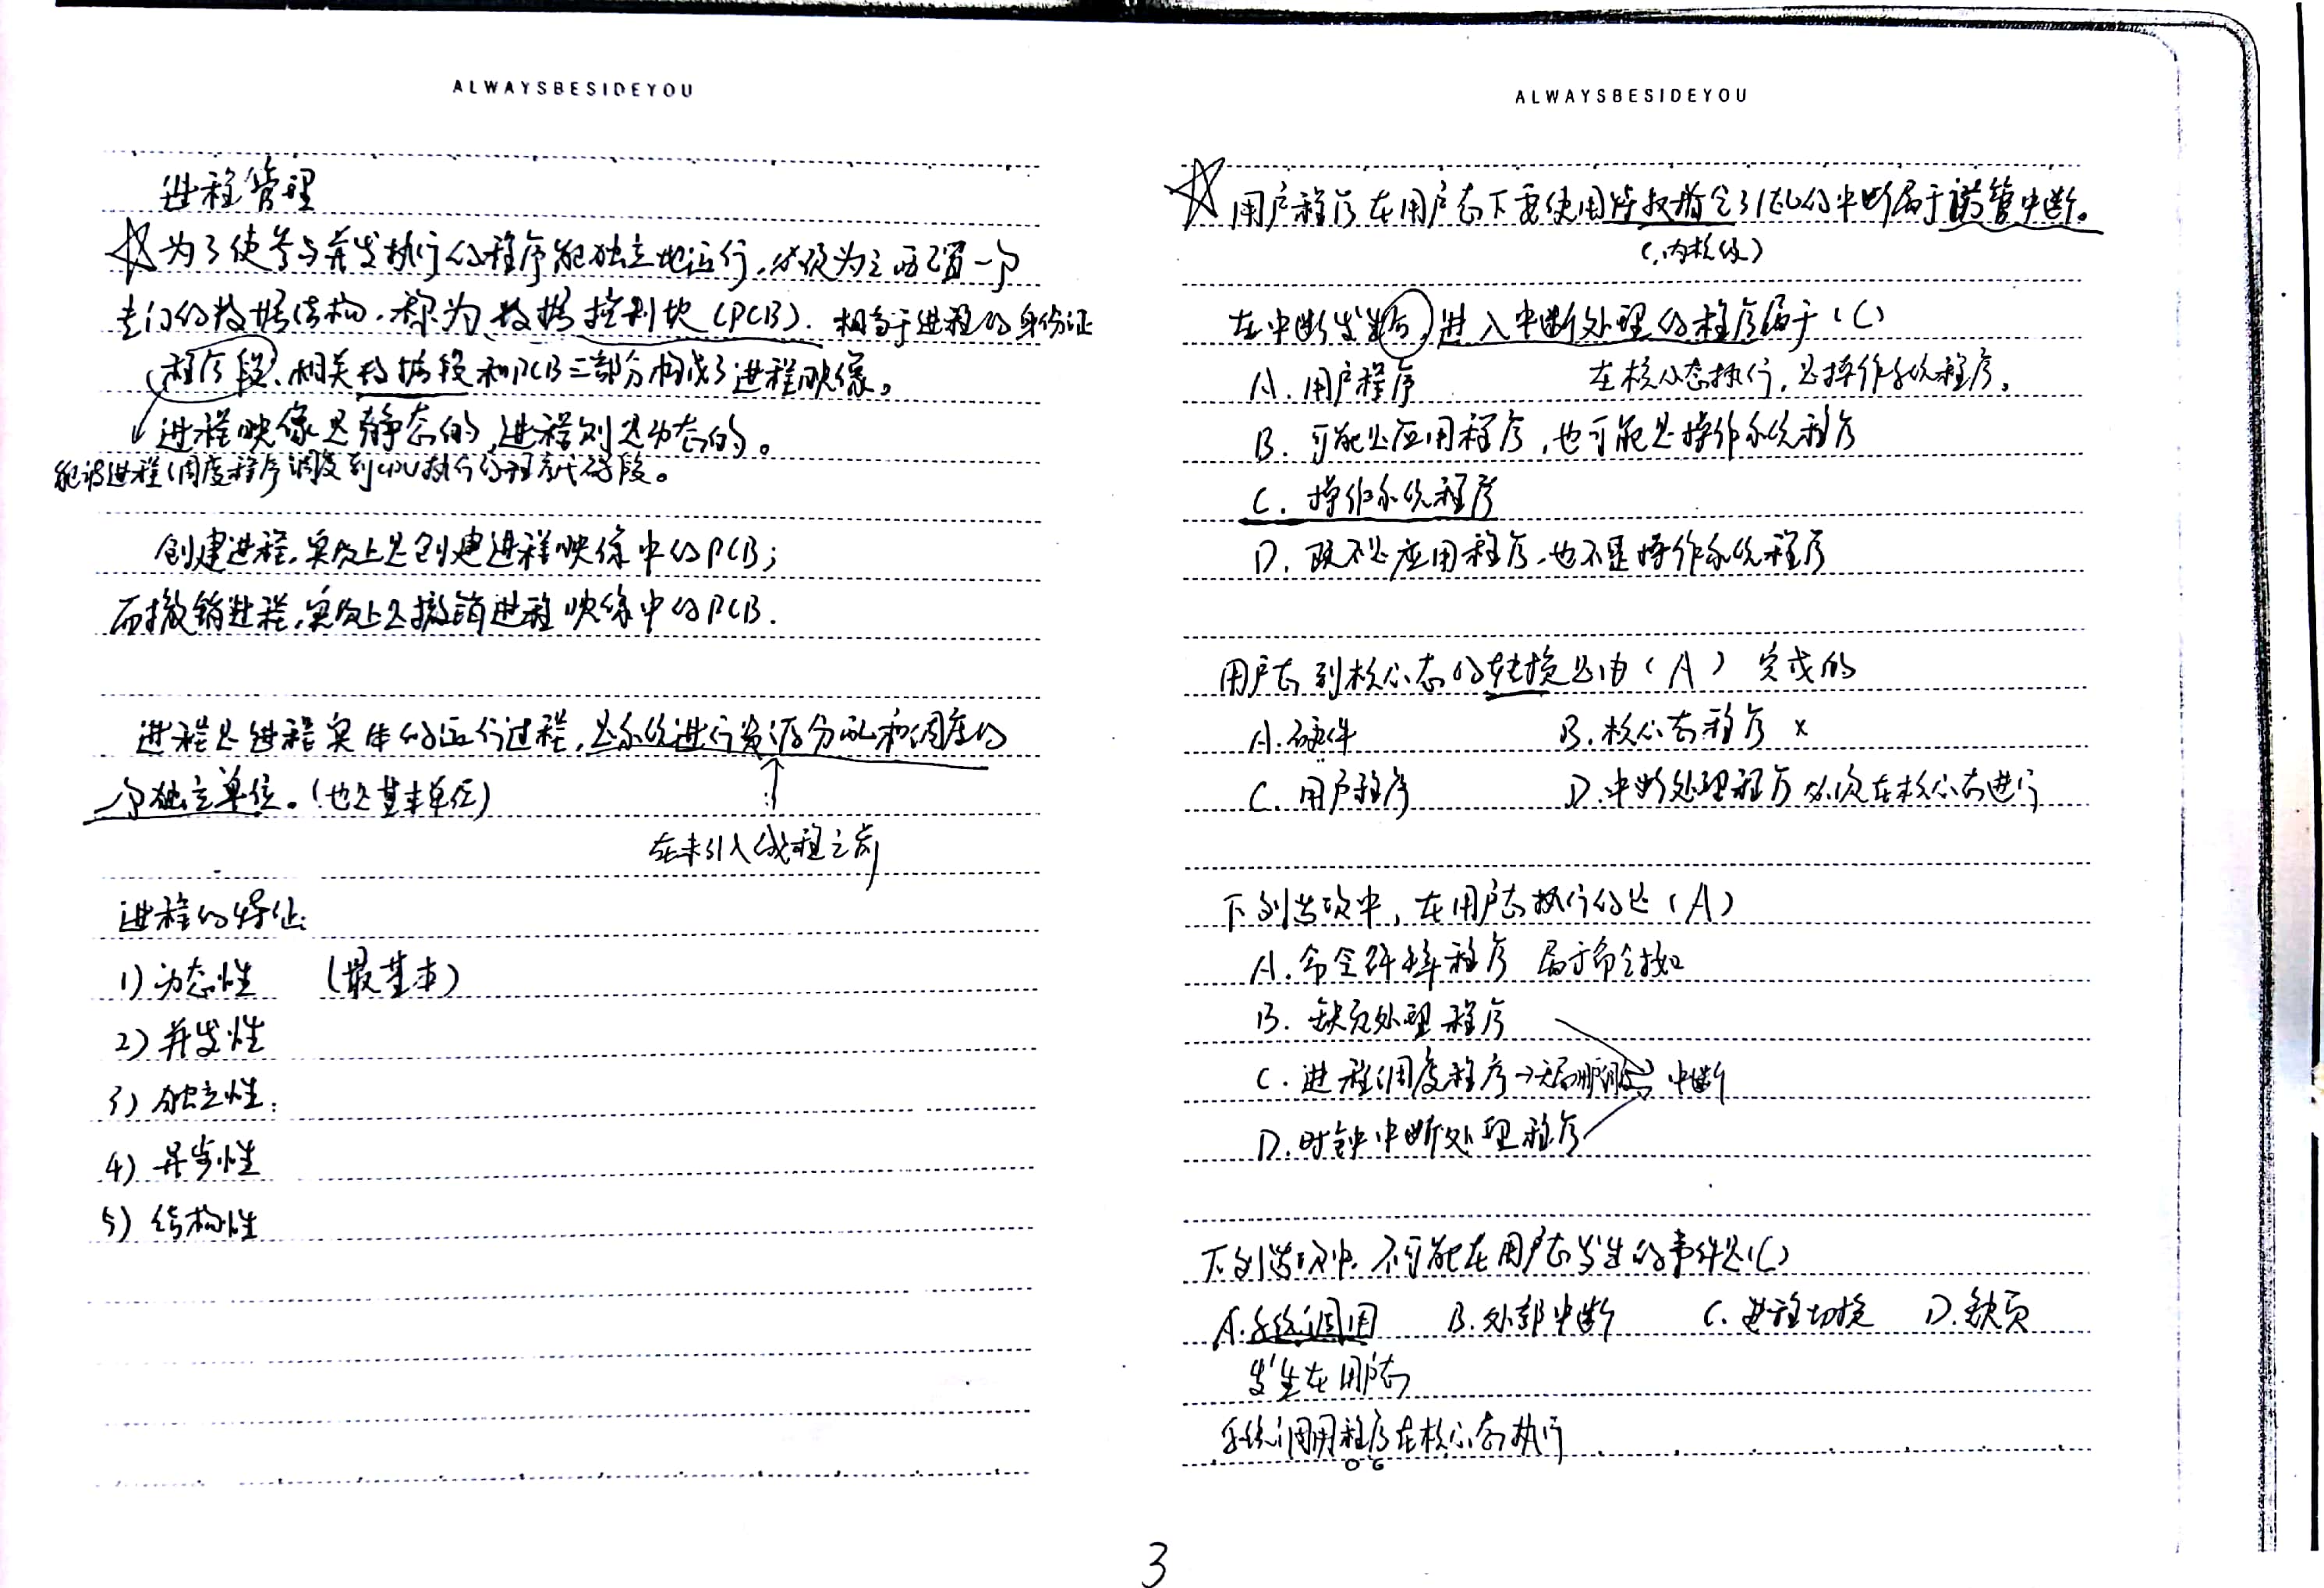 ALWAYSBESIDEYOU
进程管理
☆为了使参与并发执行的程序能独立地运行,必须为之配置一个
专门的数据结构,称为数据控制块(PCB). 相当于进程的身份证
程序段、相关数据段和PCB三部分构成了进程映像。
进程映像是静态的,进程则是动态的。
能被进程调度程序调度到CPU执行的程序代码段。
创建进程,实质上是创建进程映像中的PCB;
而撤销进程,实质上是撤销进程映像中的PCB.
进程是进程实体的运行过程,是系统进行资源分配和调度的
一个独立单位。(也是基本单位)
在未引入线程之前
进程的特征:
1) 动态性 (最基本)
2) 并发性
3) 独立性:
4) 异步性
5) 结构性
ALWAYSBESIDEYOU
☆用户程序在用户态下要使用特权指令引起的中断属于访管中断。
(内核级)
在中断发生后,进入中断处理的程序属于(C)
A. 用户程序 在核心态执行,是操作系统程序。
B. 可能是应用程序,也可能是操作系统程序
C. 操作系统程序
D. 既不是应用程序,也不是操作系统程序
用户态到核心态的转换是由(A)完成的
A. 硬件 B. 核心态程序 ×
C. 用户程序 D. 中断处理程序 必须在核心态进行
下列选项中,在用户态执行的是(A)
A. 命令解释程序 属于命令接口
B. 缺页处理程序
C. 进程调度程序→ 中断
D. 时钟中断处理程序
下列选项中,不可能在用户态发生的事件是(C)
A. 系统调用 B. 外部中断 C. 进程切换 D. 缺页
发生在用户态
系统调用程序在核心态执行
3